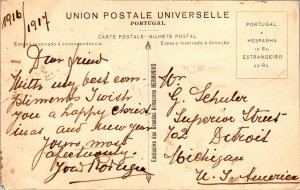 1916/1917
UNION POSTALE UNIVERSELLE
PORTUGAL
CARTE POSTALE - BILHETE POSTAL
Espaço reservado à correspondencia
Espaço reservado ao endereço
PORTUGAL
E
HESPANHA
10 Rs.
ESTRANGEIRO
20 Rs.
Dear friend
With my best com-
pliments I wish
you a happy Christ-
mas and new year
Yours, most
Exclusivo dos Grandes Armazens HERMINIOS
Mr.
G. Schuler
Superior Street
Detroit
Michigan
U. S. America